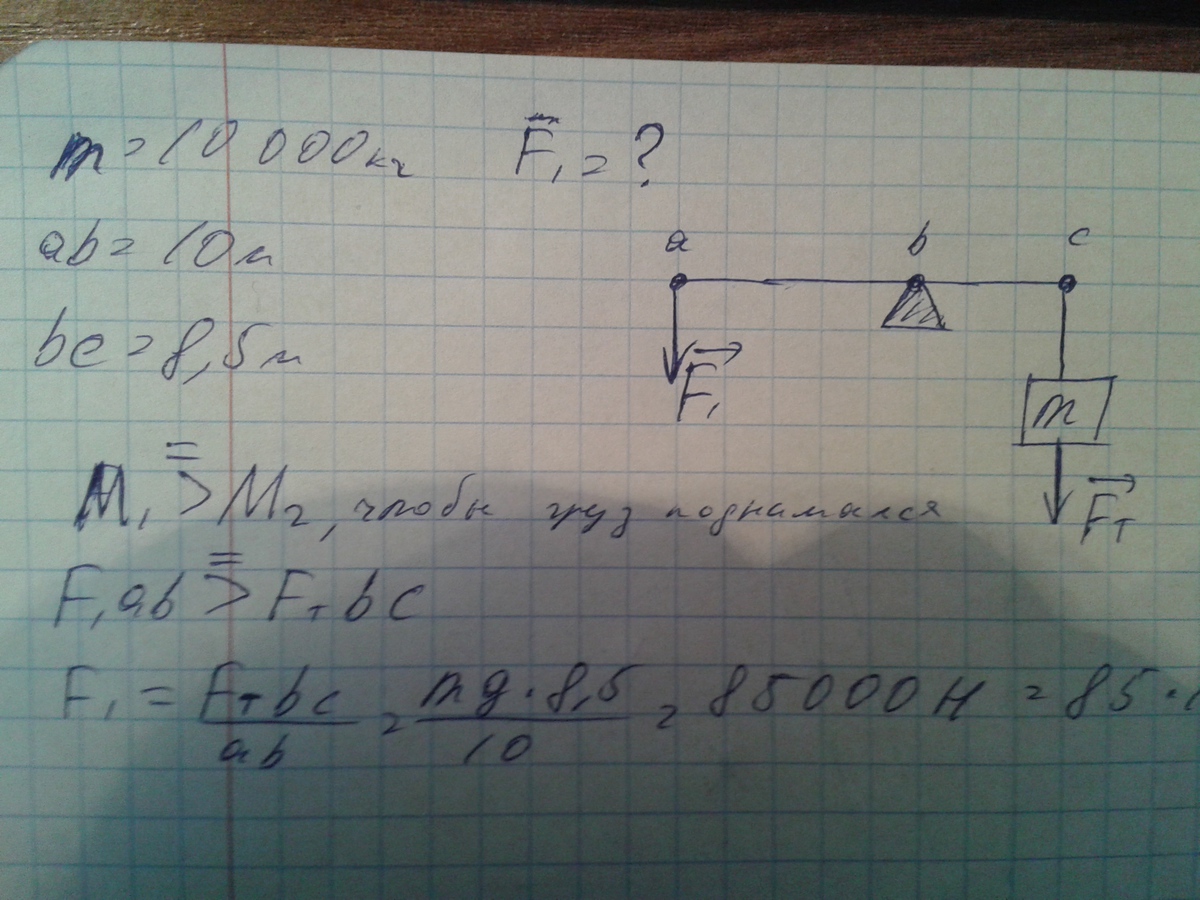 m = 10 000 кг F̅₁ = ?
ab = 10 м
bc = 8,5 м
a b c
F₁
m
Fт
M₁ ⩾ M₂, чтобы груз поднимался
F₁ab ⩾ Fтbc
F₁ = Fтbc/ab = mg·8,5/10 = 85000 Н = 85·